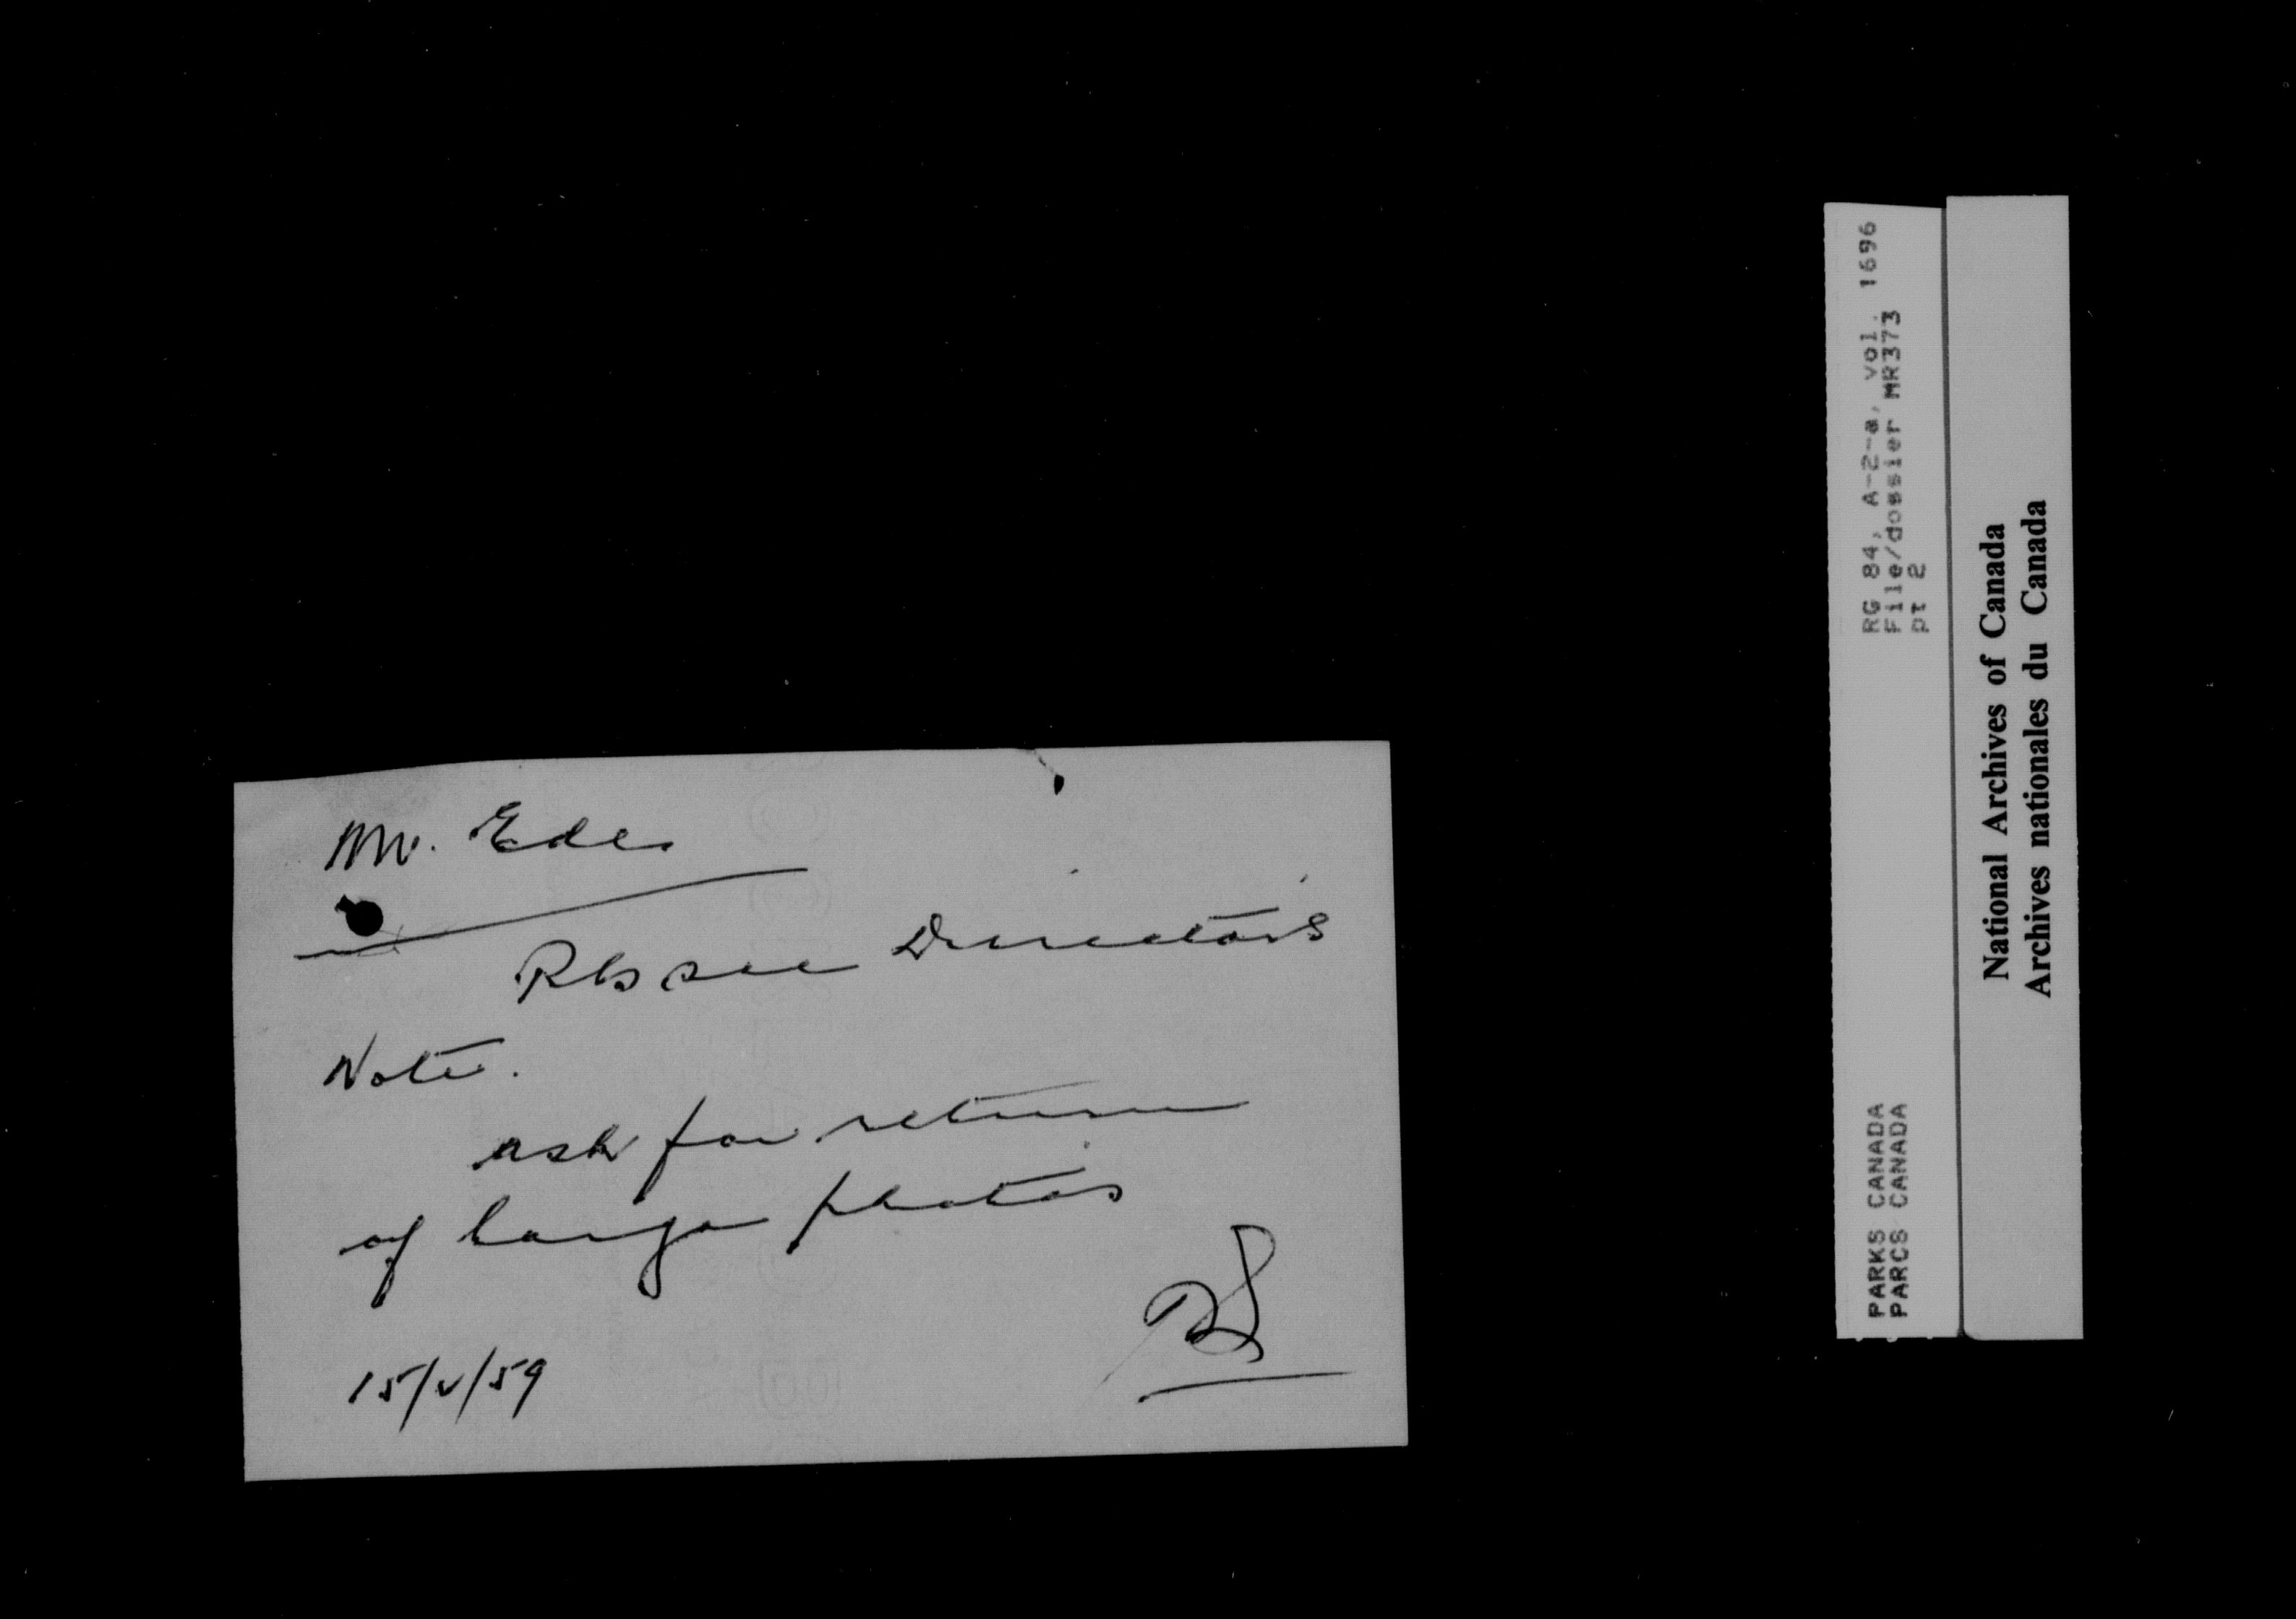 Mr. Ede.
Pls see Director's
Note.
ask for return
of large photos
15/V/59
RG 84, A-2-a, vol. 1696
File/dossier MR373
pt 2
PARKS CANADA
PARCS CANADA
National Archives of Canada
Archives nationales du Canada